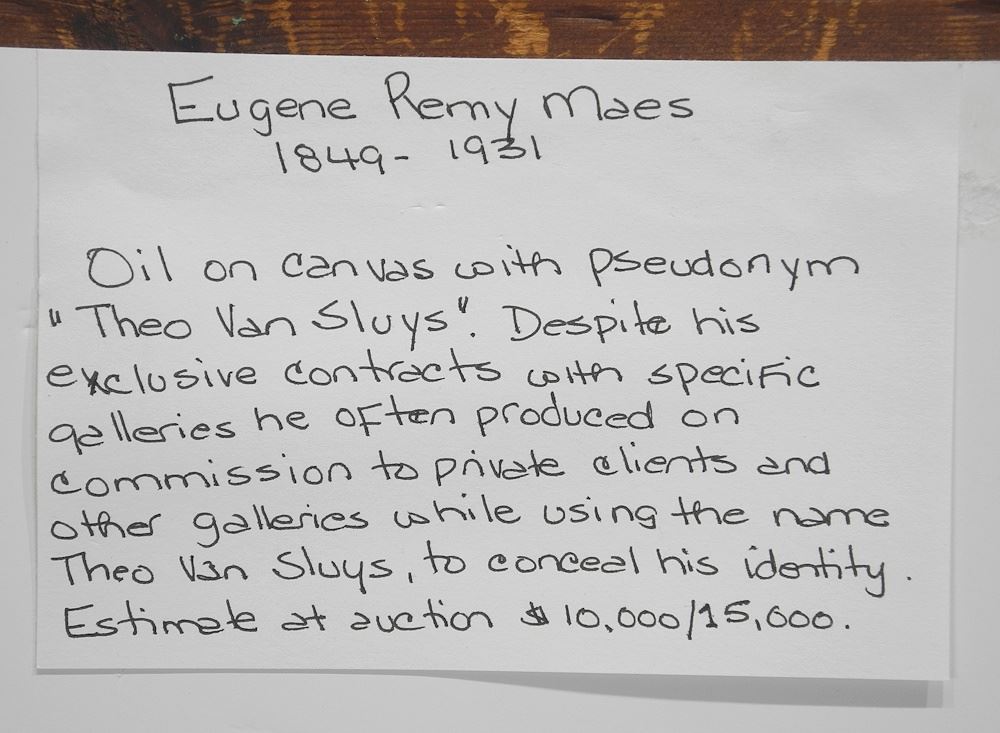 Eugene Remy Maes
1849- 1931
Oil on canvas with pseudonym
"Theo Van Sluys". Despite his
exclusive contracts with specific
galleries he often produced on
commission to private clients and
other galleries while using the name
Theo Van Sluys, to conceal his identity.
Estimate at auction $10,000/15,000.